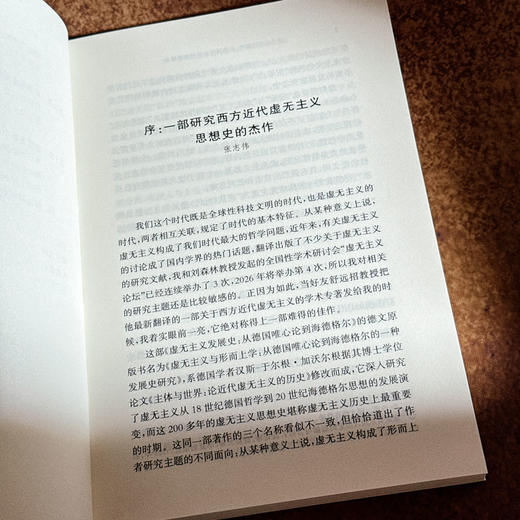 序：一部研究西方近代虚无主义
思想史的杰作
张志伟
我们这个时代既是全球性科技文明的时代，也是虚无主义的
时代，两者相互关联，规定了时代的基本特征。从某种意义上说，
虚无主义构成了我们时代最大的哲学问题，近年来，有关虚无主义
的讨论成了国内学界的热门话题，翻译出版了不少关于虚无主义
的研究文献，我和刘森林教授发起的全国性学术研讨会“虚无主义
论坛”已经连续举办了3次，2026年将举办第4次，所以我对相关
的研究主题还是比较敏感的。正因为如此，当好友舒远招教授把
他最新翻译的一部关于西方近代虚无主义的学术专著发给我的时
候，我着实眼前一亮，它绝对称得上一部难得的佳作。
这部《虚无主义发展史：从德国唯心论到海德格尔》的德文原
版书名为《虚无主义与形而上学：从德国唯心论到海德格尔的一种
发展史研究》，系德国学者汉斯-于尔根·加沃尔根据其博士学位
论文《主体与世界：论近代虚无主义的历史》修改而成，它深入研究
了虚无主义从18世纪德国哲学到20世纪海德格尔思想的发展演
变，而这200多年的虚无主义思想史堪称虚无主义历史上最重要
的时期。这同一部著作的三个名称看似不一致，但恰恰道出了作
者研究主题的不同面向：从某种意义上说，虚无主义构成了形而上